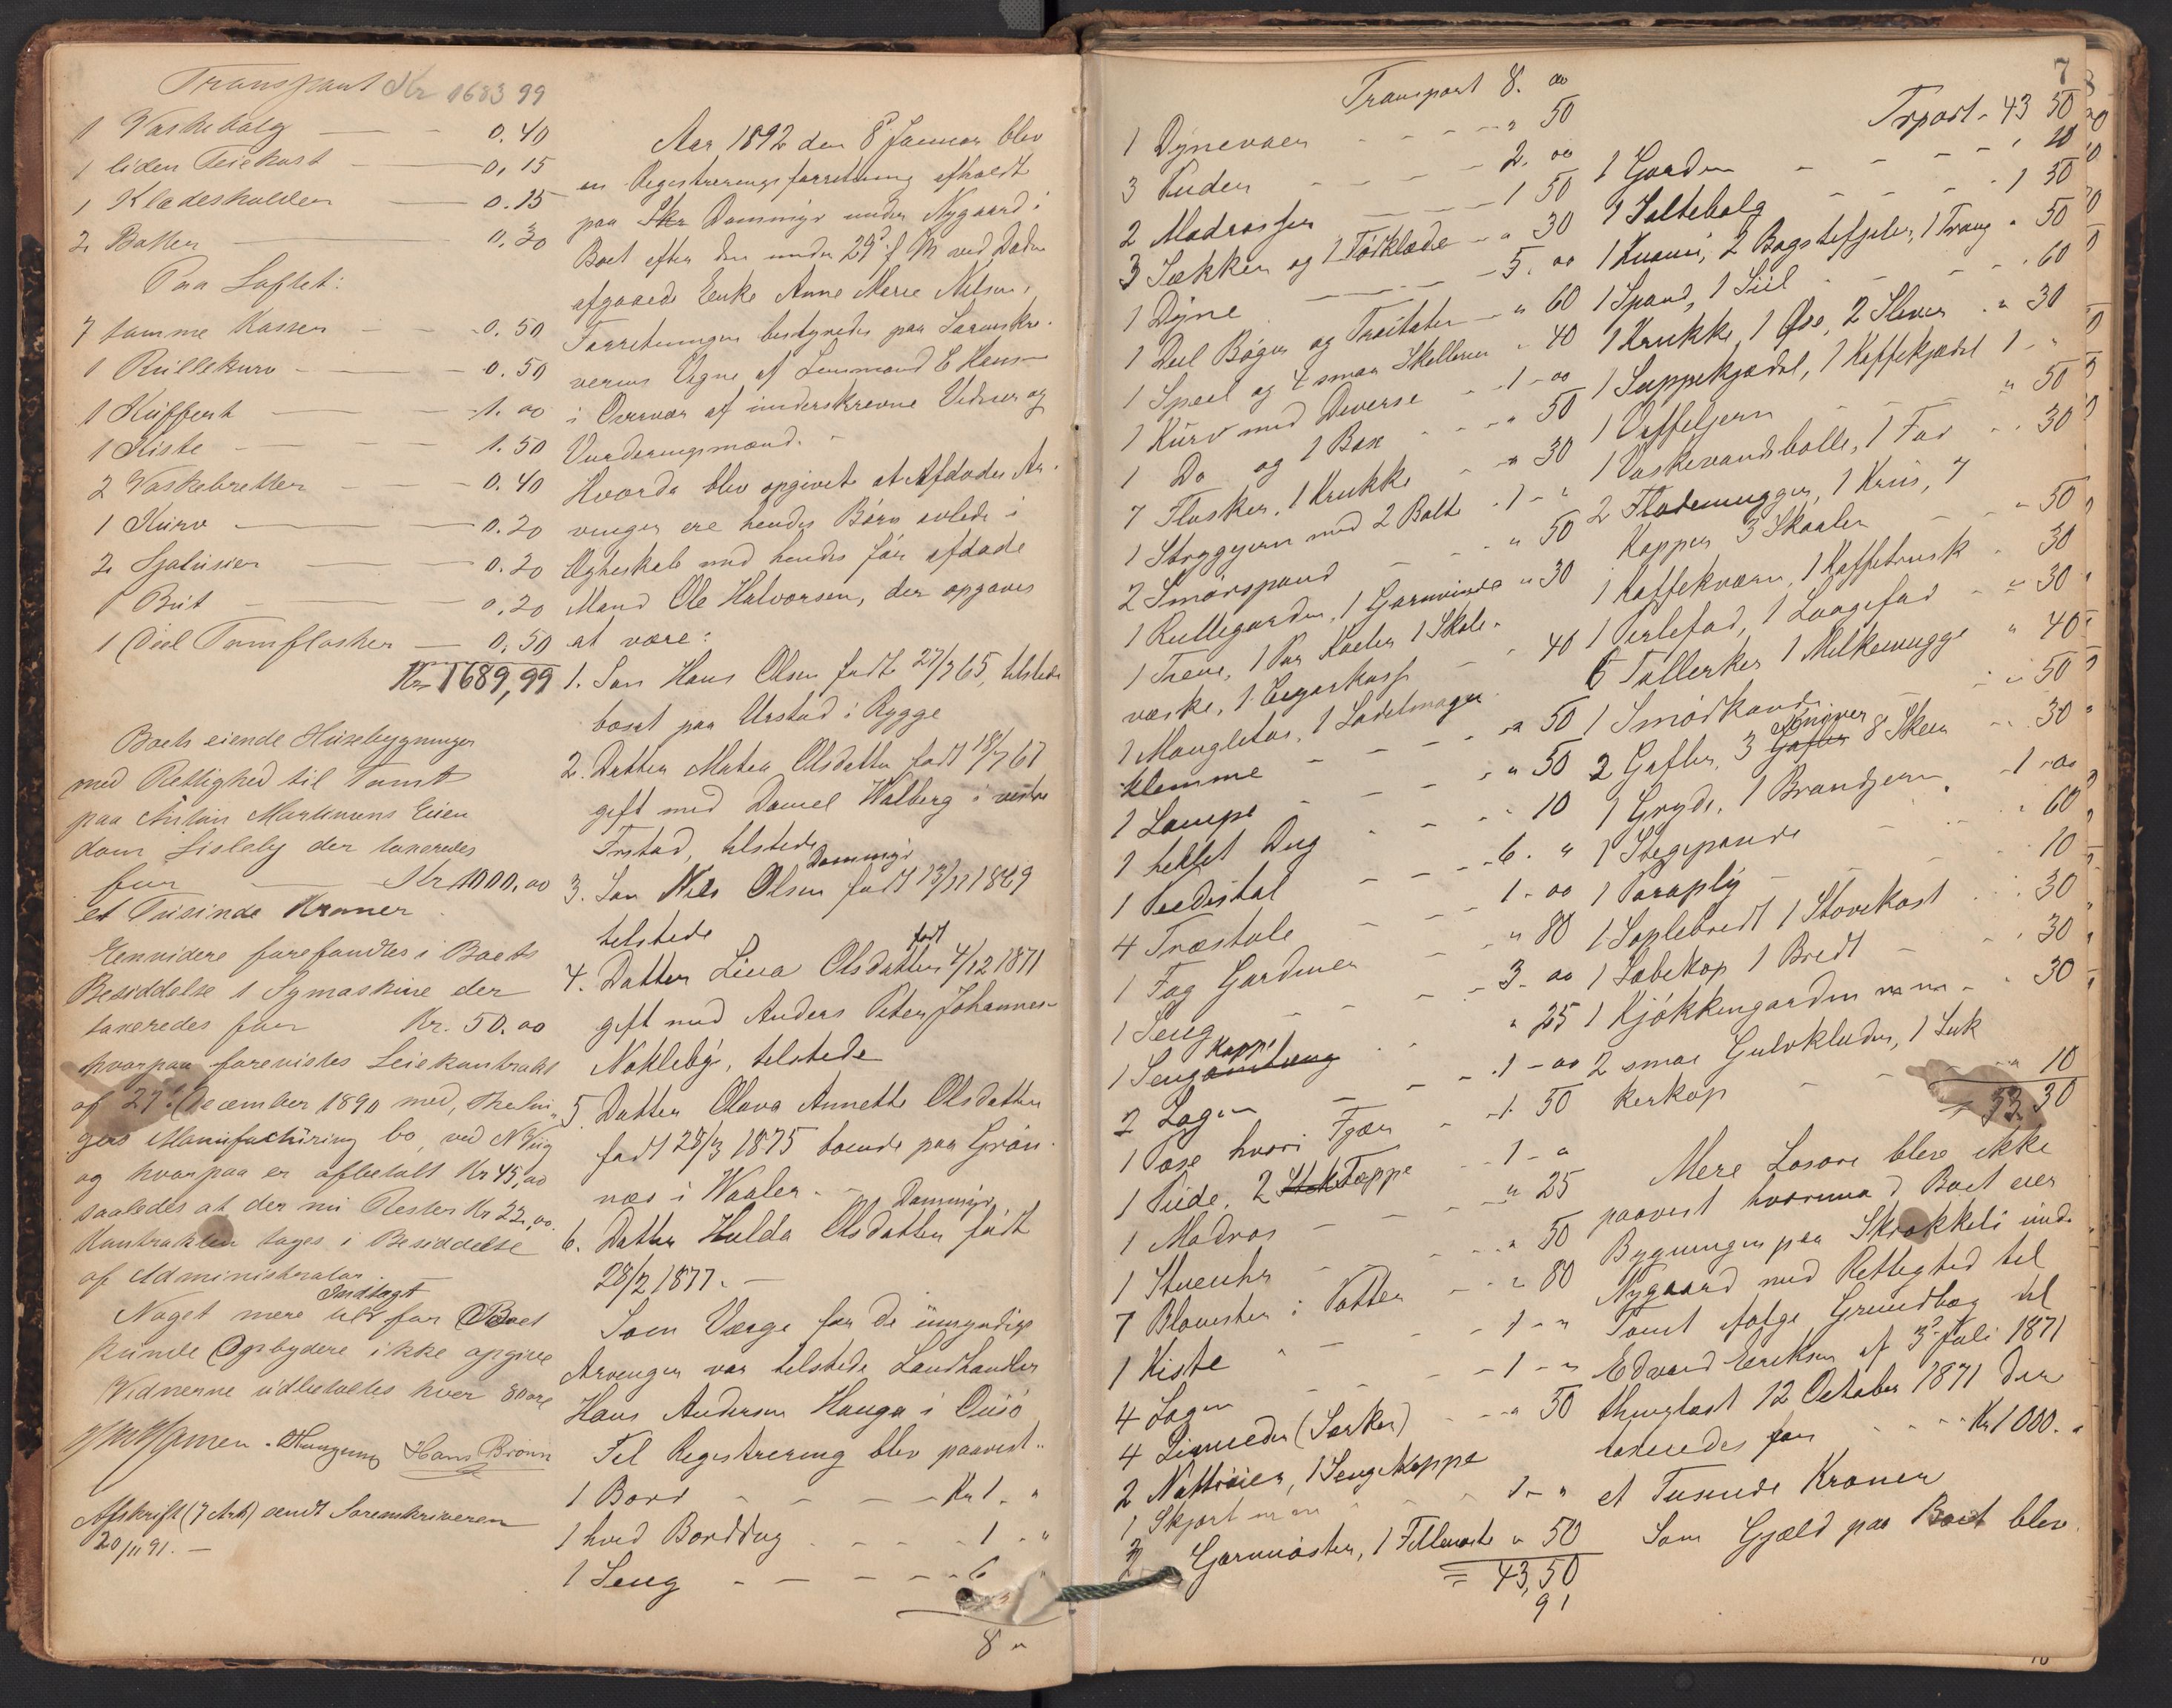 Transport Kr 1683 99
1 Vaskebalg — 0.40
1 liden Feiekost — 0,15
1 Klædesholder — 0.15
2 Bøtter — 0,30
Paa Loftet:
7 tomme Kasser — 0.50
1 Rullekurv — 0.50
1 Kuffert — 1.00
1 Kiste — 1.50
2 Vaskebretter — 0.40
1 Kurv — 0.20
2 Sjalusier — 0.20
1 — 0,20
1 Deel Tomflasker — 0,50
Kr 1689,99
Boets eiende Husebygninger
med Rettighed til Tomt
paa Anton Martinsens Eien
dom Lisleby der taxeredes
for — Kr 1000,00
et Tusinde Kroner
Fremdeles forefandtes i Boets
Besiddelse 1 Symaskine der
taxeredes for Kr. 50.00
hvorpaa forevistes Leiekontrakt
af 27. December 1890 med
Manufacturing Co, ved
og hvorpaa er afbetalt Kr 45,00
saaledes at der nu Rester Kr 22,00.
Kontrakten tages i Besiddelse
af Administrator.
Indtægt
Noget mere for Boet
kunde Opbydere ikke opgive
Vidnerne udbetaltes hver 80 øre
Hans Brønn
Afskrift (7 Ark) sendt Sorenskriveren
20/11 91. —
Aar 1892 den 8d Januar blev
en Registreringsforretning afholdt
paa Dammyr under Nygaard i
Boet efter den under 29d f. M ved Døden
afgaaede Enke Anne Marie Nilsen,
Forretningen bestyredes paa Sorenskri-
verens Vegne af Lensmand E Hans-
i Overvær af underskrevne Vidner og
Vurderingsmænd. -
Hvorda blev opgivet at Afdødes Ar-
vinger ere hendes Børn avlede i
Ægteskab med hendes før afdøde
Mand Ole Halvorsen, der opgaves
at være:
1. Søn Hans Olsen født 27/7 65, tilstede
bosat paa Urstad i Rygge
2. Datter Matea Olsdatter født 18/7 67
gift med Daniel Walberg i vestre
Frstad, tilstede
Dammyr
3. Søn Nils Olsen født 13/11 1869
tilstede
født
4. Datter Lina Olsdatter 4/12 1871
gift med Anders Peter Johannes-
Nokleby, tilstede
5. Datter Olava Annette Olsdatter
født 25/3 1875 boende paa Grøn-
næs i Waaler. -
Dammyr
6. Datter Hulda Olsdatter født
28/2 1877. —
Som Værge for de umyndige
Arvinger var tilstede Landhandler
Hans Andersen Hauga i Onsø
Til Registrering blev paavist:
1 Bord — Kr 1. "
1 hvid Borddug — 1 - "
1 Seng — 6
8 "
7
Transport 8. 00
1 Dynevaer — " 50
3 Puder — 2. 00
2 Madrasser — 1 50
3 Sækker og 1 Forklæde — " 30
1 Dyne — 5. 00
1 Deel Bøger og Traktater — " 60
1 Speil og 4 smaa Skillerier " 40
1 Kurv med Diverse — 1 - 00
1 Do og 1 Box — " 50
7 Flasker, 1 Krukke — " 30
1 Strygejern med 2 Bolte . 1 - "
2 Smørspand — " 50
1 Rullegardin, 1 Garnvinde " 30
1 Trene, 1 Par Karder 1 Skole-
væske, 1 Cigarkasse — 40
1 Mangletøi, 1 Sadelmager
klemme — " 50
1 Lampe — " 50
1 heklet Dug — 10
1 Peedistal — 6. "
4 Træstole — 1 - 00
1 Fag Gardiner — " 80
1 Seng — 3. 00
Kappe
1 Seng — " 25
2 Lagen — 1 - 00
1 Pose hvori Fjær — 1. 50
1 Pude, 2 Tæppe — 1 - "
1 Madras — " 25
1 Stueuhr — " 50
7 Blomster i Potter — " 80
1 Kiste — 1 - "
4 Lagen — 1 - "
4 Linneder (Særker) — " 50
2 Nattrøier, 1 Sengekappe
1 Skjørt m m — 1 - "
2 Garnnøster, 1 Fillenøste " 50
= 43,50
91
Trport - 43 50
1 Gardin — " 20
1 Saltebalg — 1 30
1 Kvarn, 2 Bagstefjeler, 1 Traug " 50
1 Spand, 1 Siil — " 60
1 Krukke, 1 Øse, 2 Slever " 30
1 Suppekjædel, 1 Kaffekjædel 1 - "
1 Vaffeljern — " 50
1 Vaskevandsbolle, 1 Fad — 30
2 Flødemugger, 1 Krus, 7
Kopper 3 Skaaler — " 50
1 Kaffekværn, 1 Kaffebrusk 30
1 Perlefad, 1 Laagefad — " 30
6 Tallerker 1 Melkemugge " 40
1 Smørkande — " 50
Kniver
2 Gafler, 3 Gafler 8 Skeer — 30
1 Gryde, 1 Brandjern — 1 - 00
1 Stegepande — " 60
1 Paraply — 10
1 Soplebredt 1 Stovekost . 30
1 Sæbekop 1 Bredt — " 30
1 Kjøkkengardin m m - " 30
2 smaa Gulvkluder, 1 Suk
kerkop — " 10
= 53, 30
Mere Løsøre blev ikke
paavist hvorimod Boet eier
Bygningen paa Skrokkeli unde
Nygaard med Rettighed til
Tomt ifølge Grundbog til
Edvard Eriksen af 3d Juli 1871
thinglæst 12 October 1871 der
taxeredes for — Kr 1000. "
et Tusinde Kroner
Som Gjæld paa Boet blev